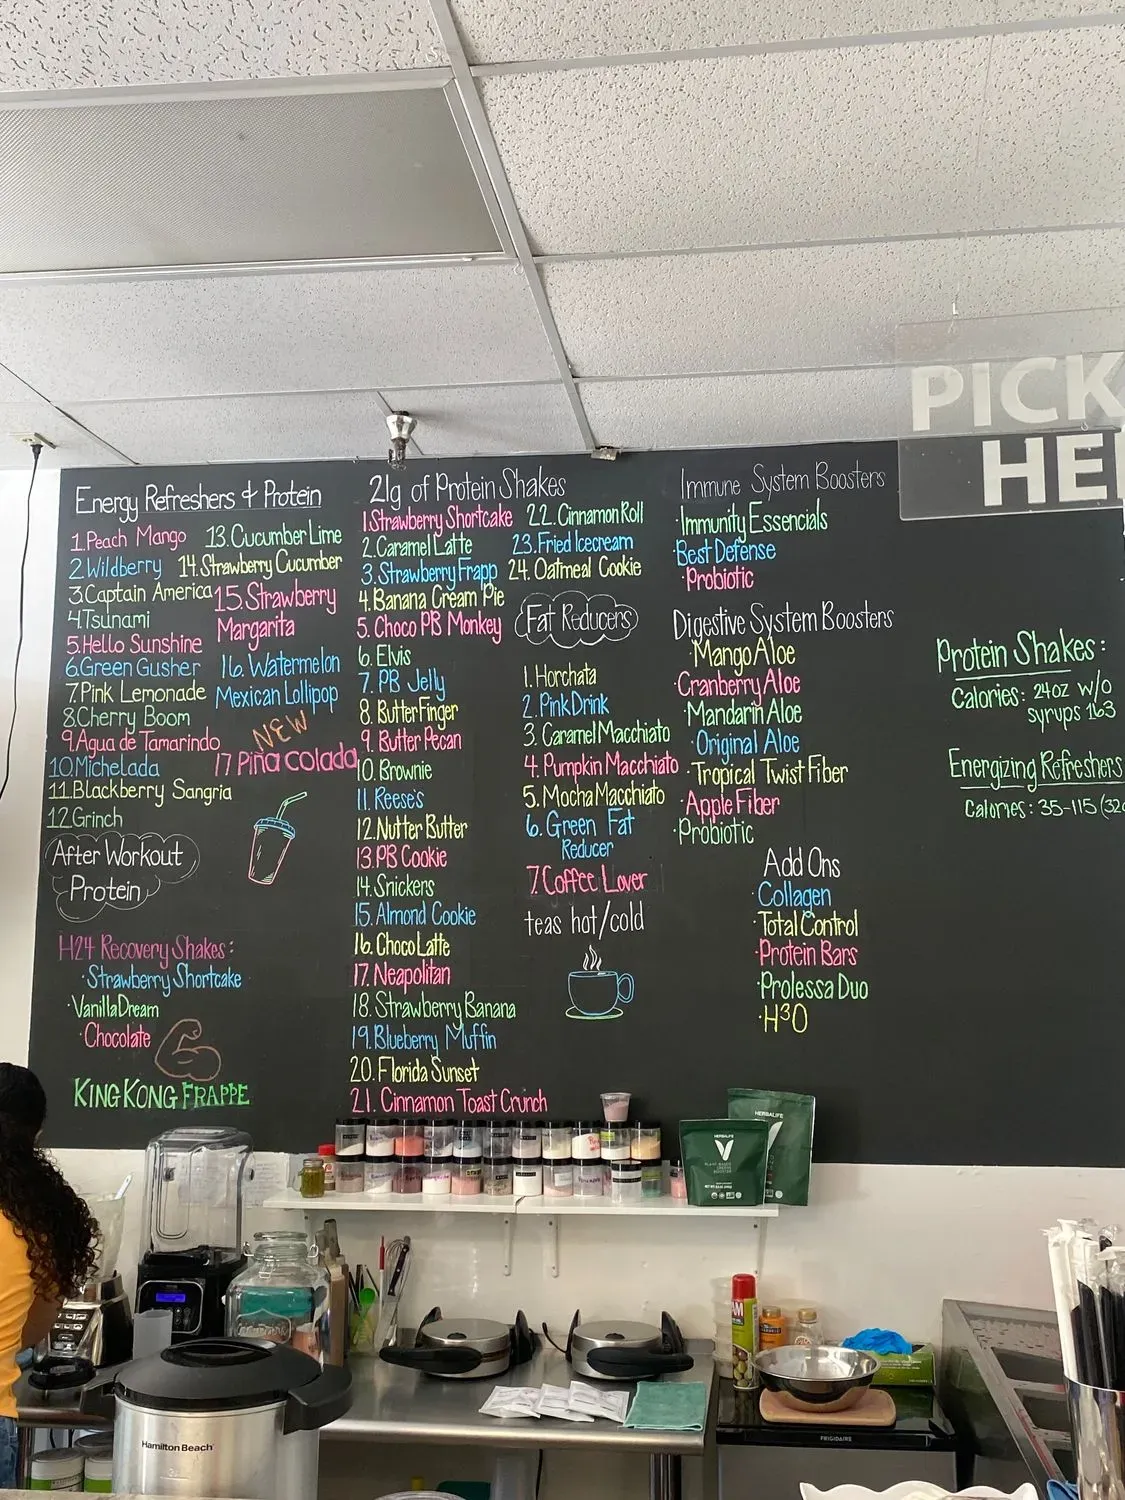 PICK
HE
Energy Refreshers & Protein
1.Peach Mango
2.Wildberry
3.Captain America
4.Tsunami
5.Hello Sunshine
6.Green Gusher
7.Pink Lemonade
8.Cherry Boom
9.Agua de Tamarindo
10.Michelada
11.Blackberry Sangria
12.Grinch
13.Cucumber Lime
14.Strawberry Cucumber
15.Strawberry
Margarita
16.Watermelon
Mexican Lollipop
NEW
17 Piña colada
After Workout
Protein
H24 Recovery Shakes:
·Strawberry Shortcake
·Vanilla Dream
·Chocolate
KING KONG FRAPPE
21g of Protein Shakes
1.Strawberry Shortcake
2.Caramel Latte
3.Strawberry Frapp
4.Banana Cream Pie
5.Choco PB Monkey
6.Elvis
7.PB Jelly
8.ButterFinger
9.Butter Pecan
10.Brownie
11.Reese's
12.Nutter Butter
13.PB Cookie
14.Snickers
15.Almond Cookie
16.Choco Latte
17.Neapolitan
18.Strawberry Banana
19.Blueberry Muffin
20.Florida Sunset
21.Cinnamon Toast Crunch
22.Cinnamon Roll
23.Fried Icecream
24.Oatmeal Cookie
Fat Reducers
1.Horchata
2.Pink Drink
3.Caramel Macchiato
4.Pumpkin Macchiato
5.Mocha Macchiato
6.Green Fat
Reducer
7.Coffee Lover
teas hot/cold
Immune System Boosters
·Immunity Essencials
·Best Defense
·Probiotic
Digestive System Boosters
·Mango Aloe
·Cranberry Aloe
·Mandarin Aloe
·Original Aloe
·Tropical Twist Fiber
·Apple Fiber
·Probiotic
Add Ons
·Collagen
·Total Control
·Protein Bars
·Prolessa Duo
·H³O
Protein Shakes:
Calories: 24oz w/o
syrups 163
Energizing Refreshers
Calories: 35-115 (32
HERBALIFE
HERBALIFE
V
PLANT-BASED
Hamilton Beach
FRIGIDAIRE